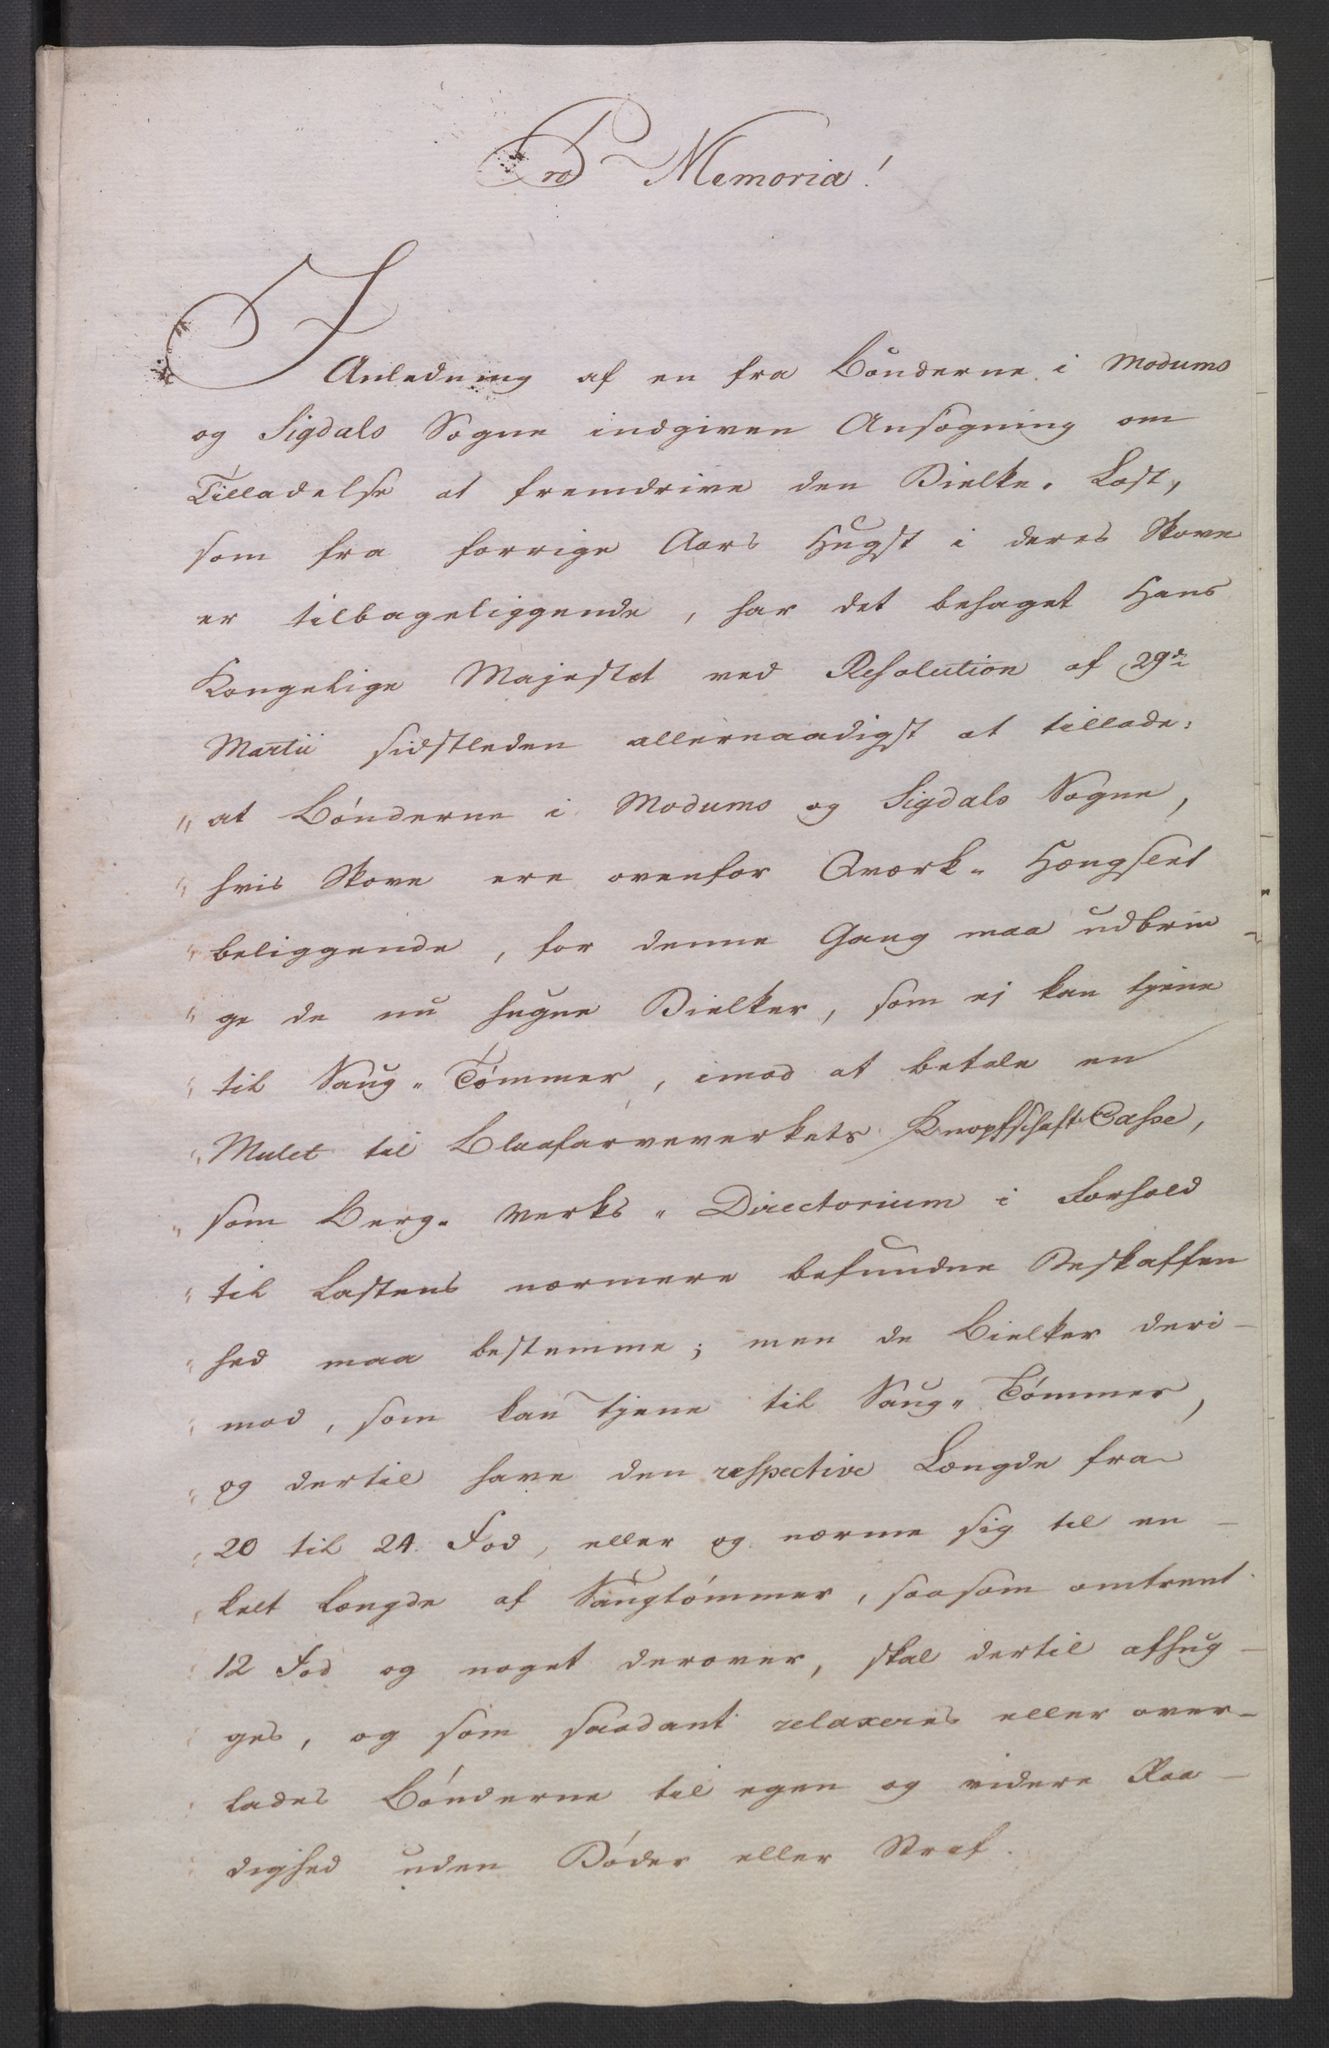 Pro Memoria!
I Anledning af en fra Bønderne i Modums
og Sigdals Sogne indgiven Ansøgning om
Tilladelse at fremdrive den Bielke-Last,
som fra forrige Aars Hugst i deres Skove
er tilbageliggende, har det behaget Hans
Kongelige Majestæt ved Resolution af 29de
Martii sidstleden allernaadigst at tillade:
"at Bønderne i Modums og Sigdals Sogne,
"hvis Skove ere ovenfor Qværk-Hængslet
"beliggende, for denne Gang maa udbrin-
"ge de nu hugne Bielker, som ej kan tjene
"til Saug-Tømmer, imod at betale en
"Mulct til Blaafarveverkets Knopfschaft Casse,
"som Berg-Werks-Directorium i Forhold
"til Lastens nærmere befundne Beskaffen
"hed maa bestemme; men de Bielker deri-
"mod, som kan tjene til Saug-Tømmer,
"og dertil have den respective Længde fra
"20 til 24 Fod, eller og nærme sig til en-
"kelt Længde af Saugtømmer, saasom omtrent
"12 Fod og noget derover, skal dertil afhug-
"ges, og som saadant relaxeres eller over-
"lades Bønderne til egen og videre Raa-
"dighed uden Bøder eller Straf.